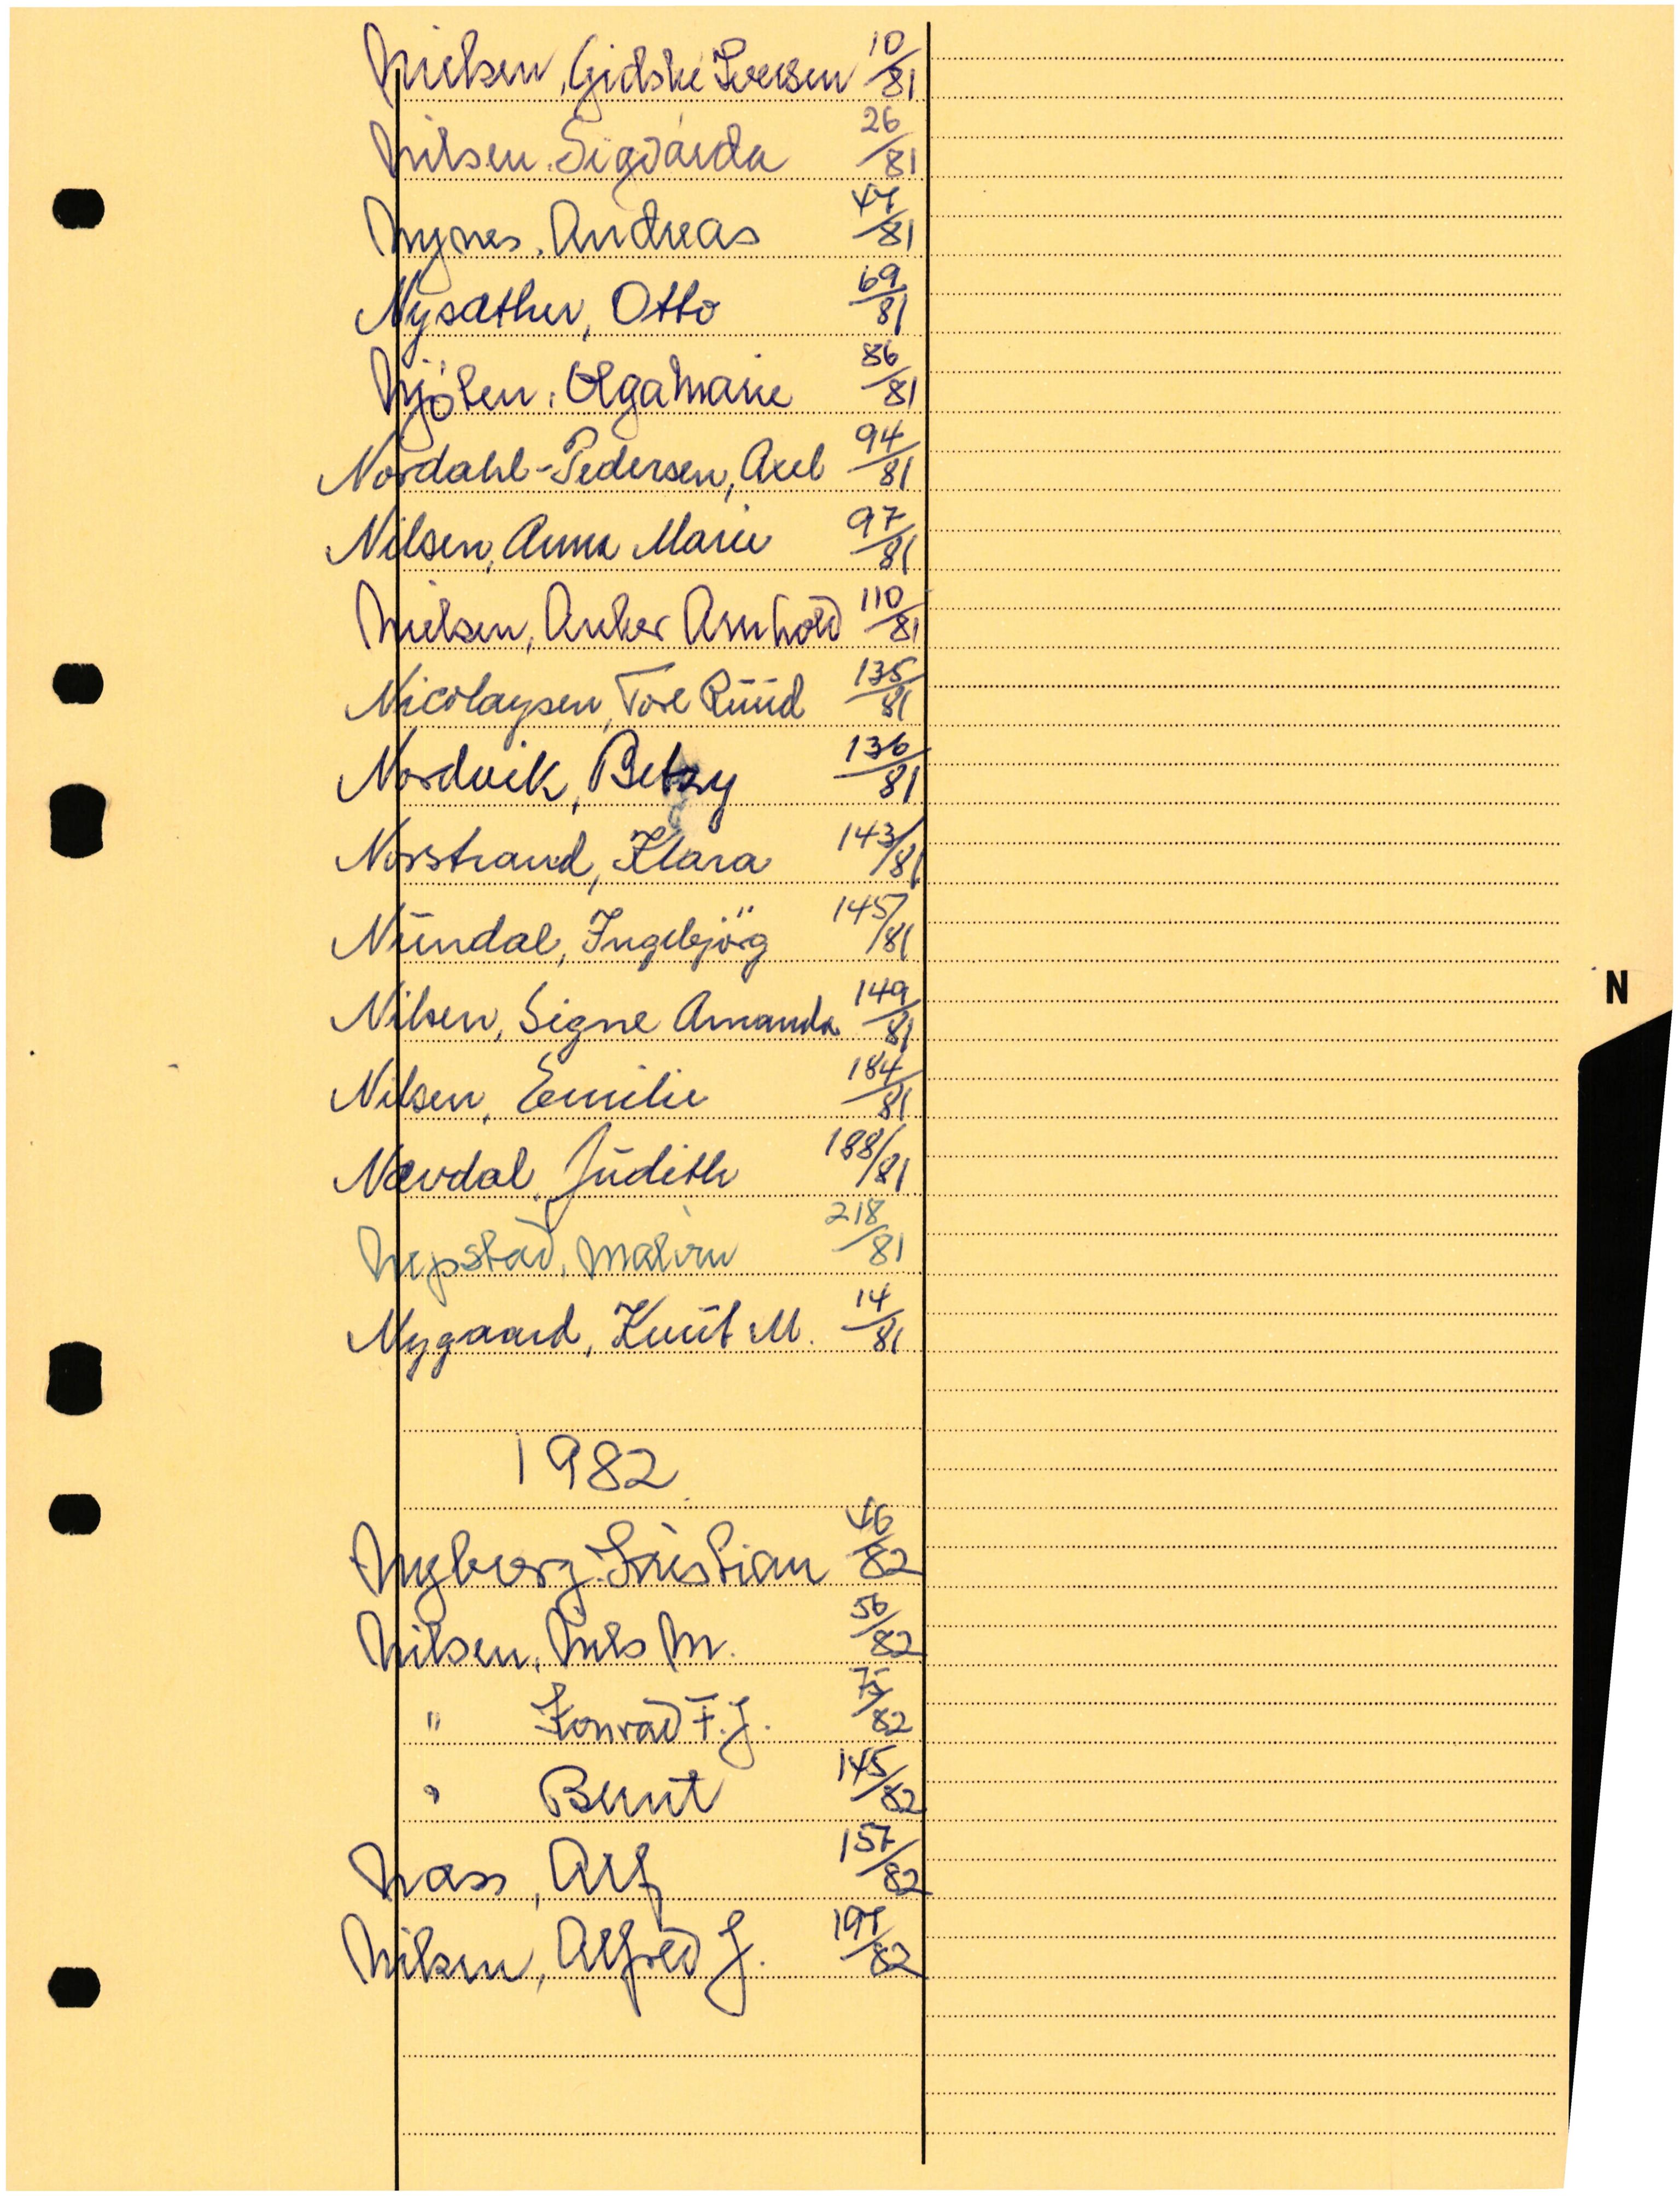 Nielsen, Gidske Iversen 10/81
Nilsen, Sigvarda 26/81
Nynes, Andreas 47/81
Nysæther, Otto 69/81
Njøten, Olga Marie 86/81
Nordahl-Pedersen, Axel 94/81
Nilsen, Anna Marie 97/81
Nielsen, Anker Arnhold 110/81
Nicolaysen, Tore Ruud 135/81
Nordvik, Betzy 136/81
Norstrand, Klara 143/81
Nundal, Ingebjörg 145/81
Nilsen, Signe Amanda 149/81
Nilsen, Emilie 184/81
Nævdal, Judith 188/81
Nepstad, Malvin 218/81
Nygaard, Knut M. 14/81
N
1982
Nygberg, Kristian 46/82
Nilsen, Nils M. 56/82
" Konrad F. J. /82
" Bernt 145/82
Næss, Alf 157/82
Nilsen, Alfred J. 197/82